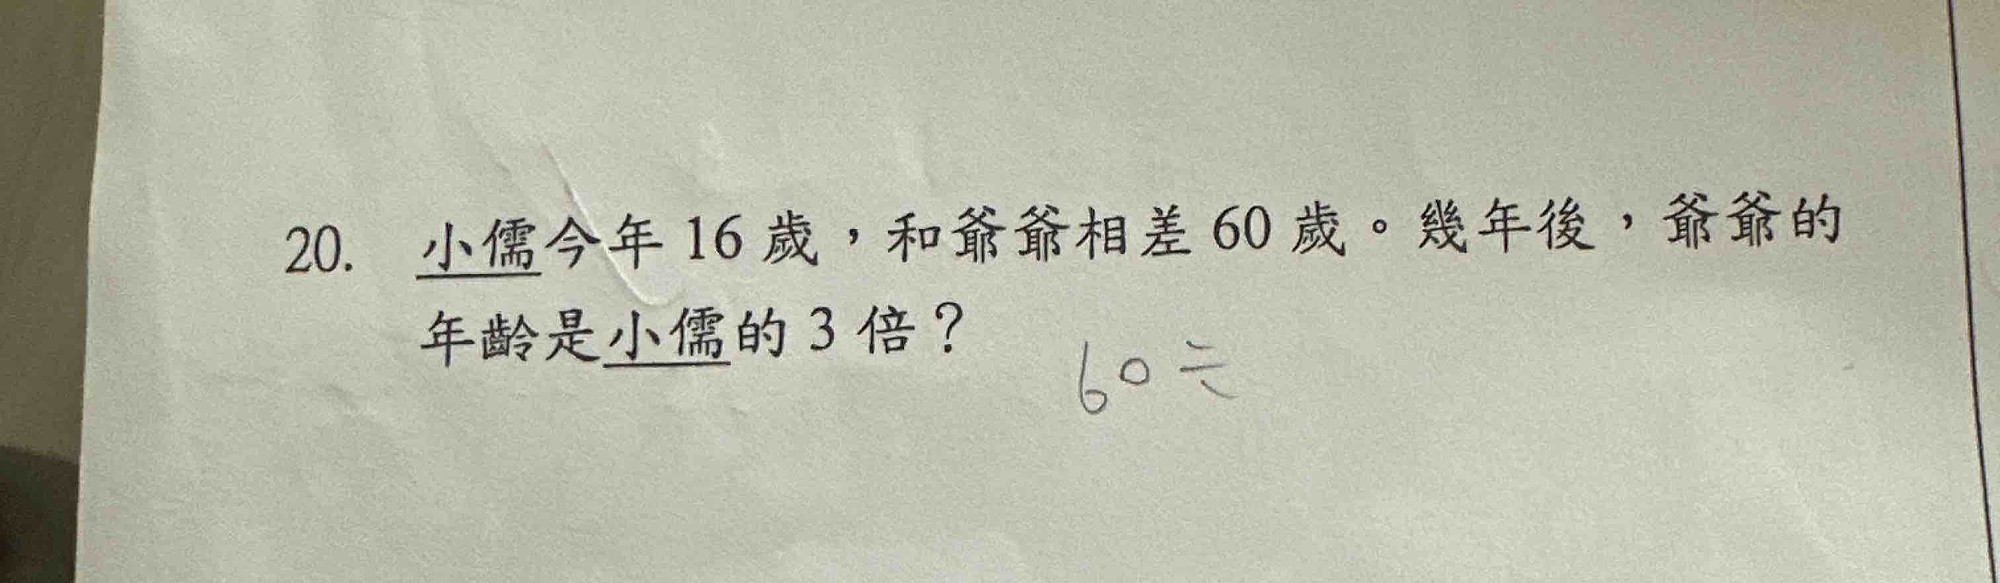 20. 小儒今年 16 歲，和爺爺相差 60 歲。幾年後，爺爺的
年齡是小儒的 3 倍？
60÷